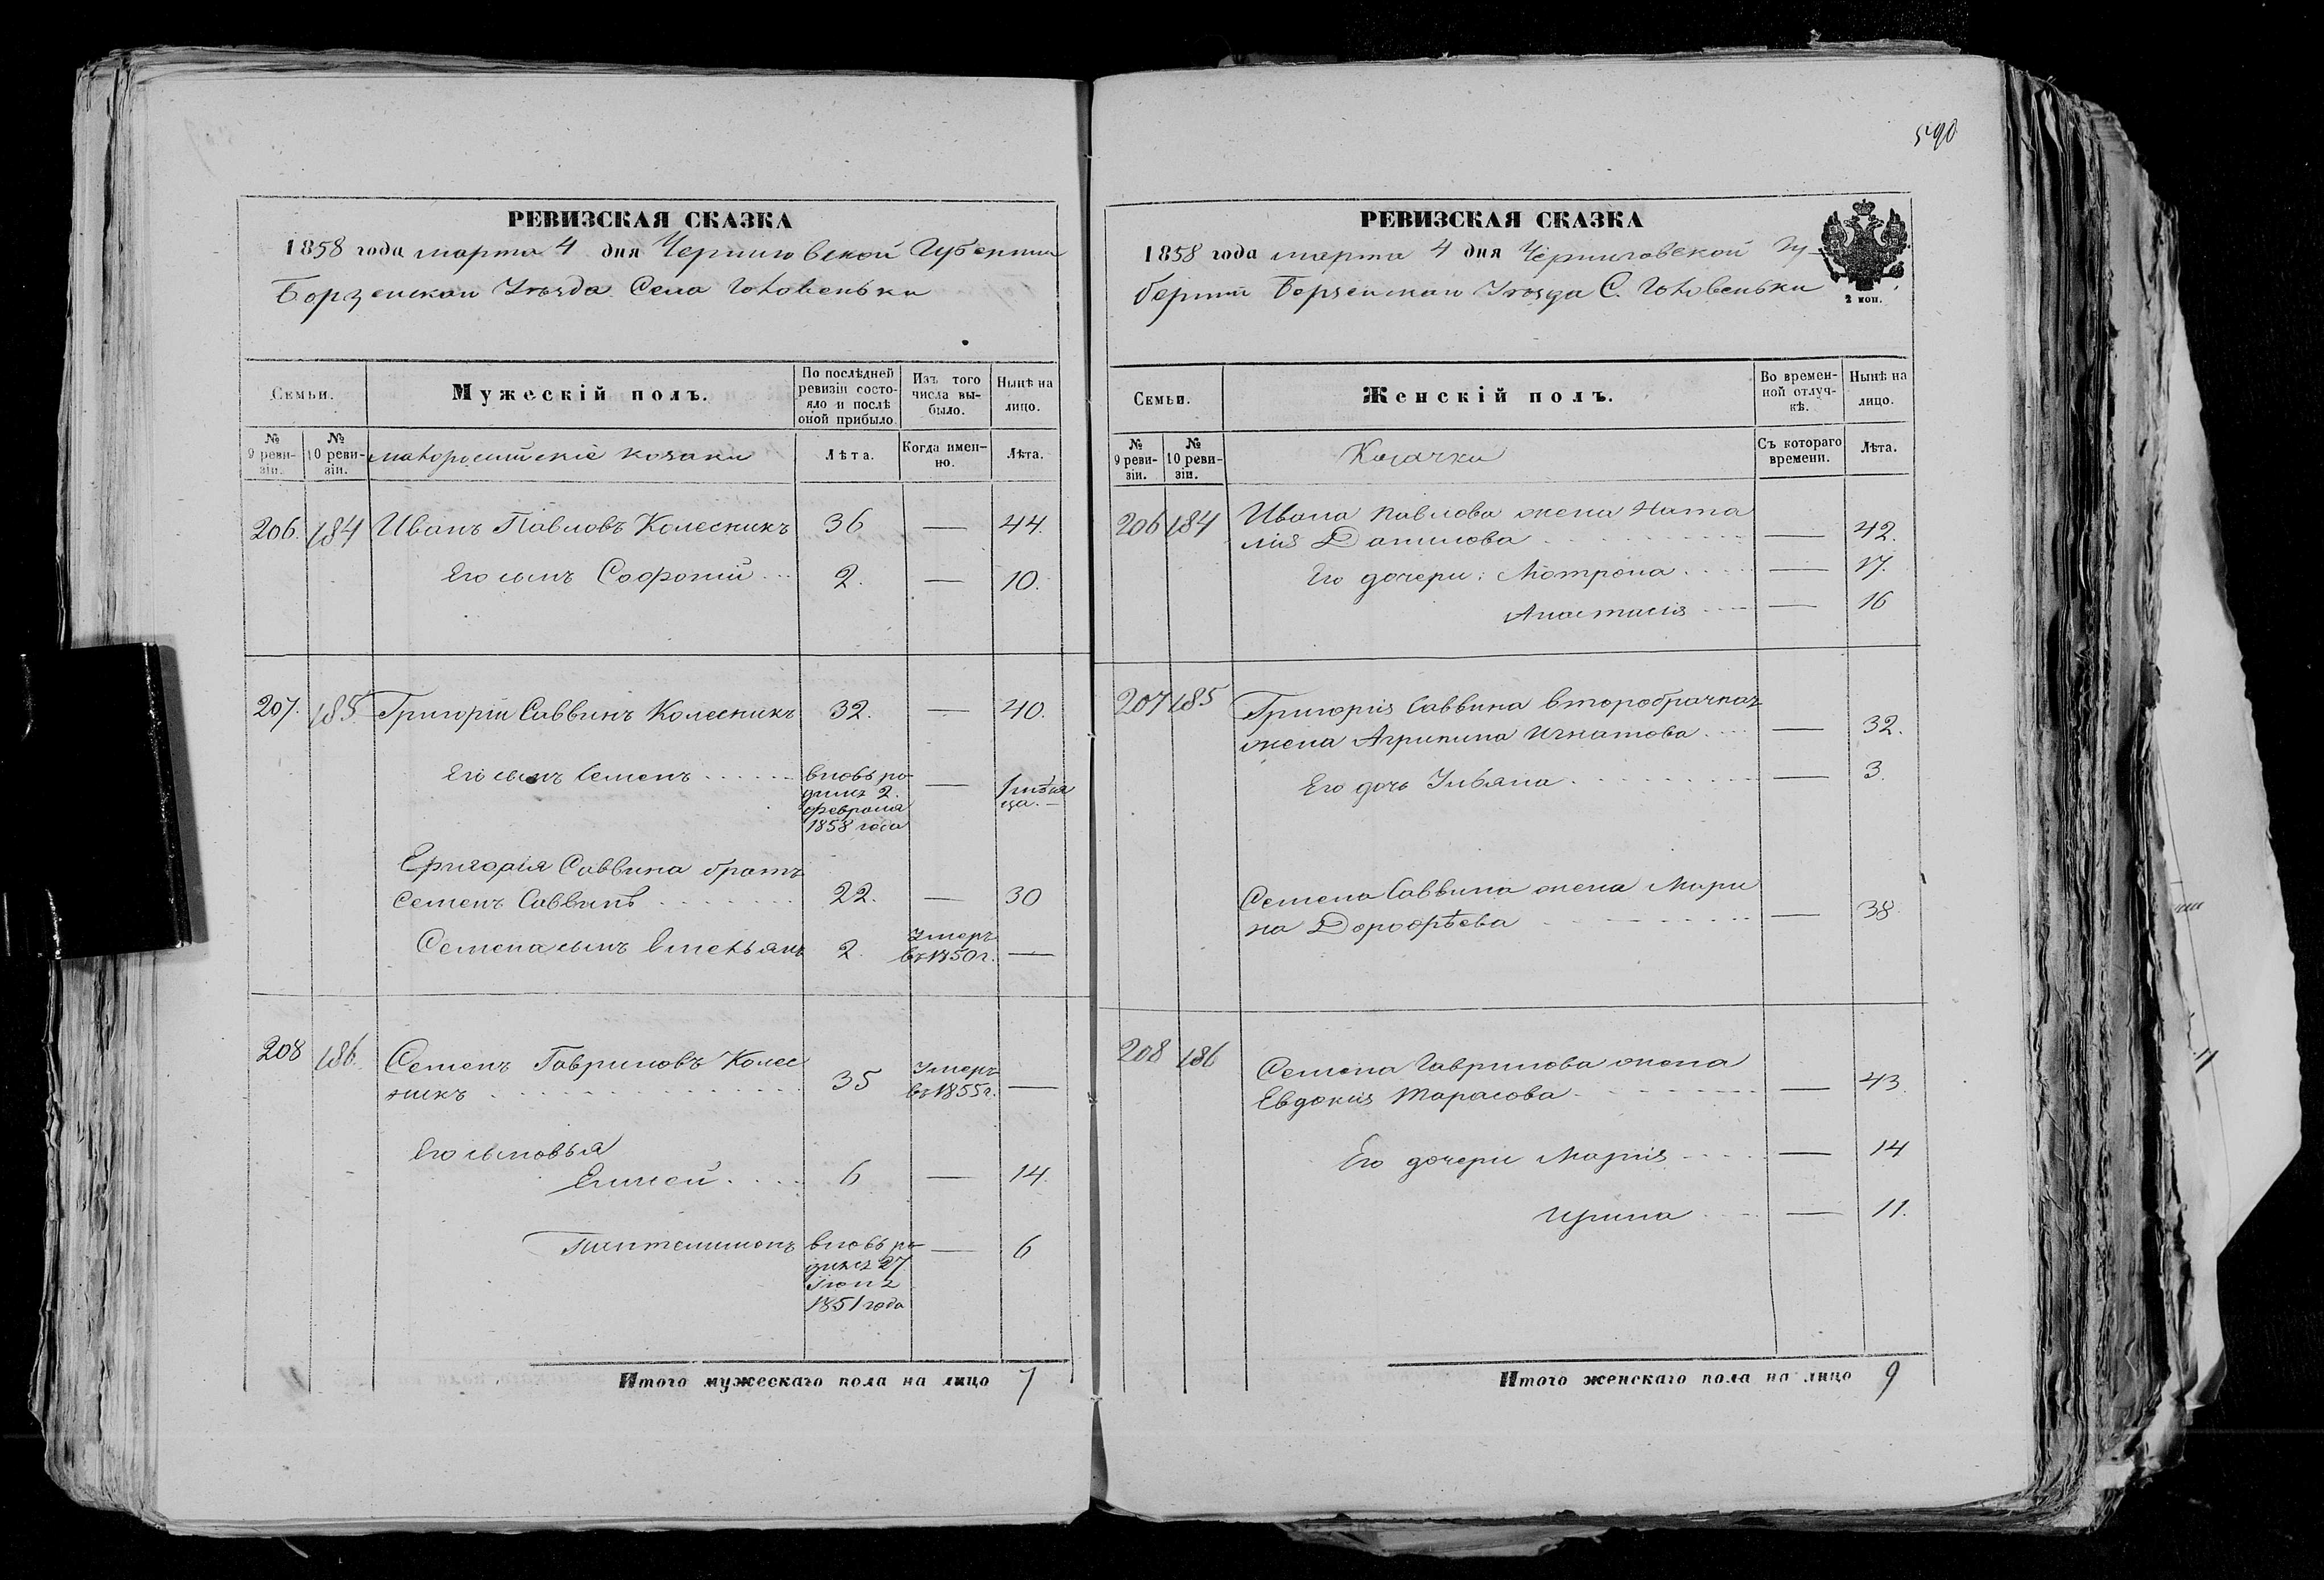 590
РЕВИЗСКАЯ СКАЗКА
1858 года марта 4 дня Черниговской Губернии
Борзенскаго Уѣзда Села Головеньки
Семьи.
Мужескій полъ.
По послѣдней ревизіи состояло и послѣ оной прибыло
Изъ того числа выбыло.
Нынѣ на лицо.
№ 9 ревизіи.
№ 10 ревизіи.
малороссійскіе козаки
Лѣта.
Когда именно.
Лѣта.
206. 184 Иванъ Павловъ Колесникъ 36 — 44.
Его сынъ Софроній 2. — 10.
207. 185. Григорій Саввинъ Колесникъ 32. — 40.
Его сынъ Семенъ
вновь ро-
дился 2.
февраля
1858 года
— 1 мѣся
ца. —
Григорія Саввина братъ
Семенъ Саввинъ 22. — 30
Семена сынъ Емельянъ 2.
Умеръ
въ 1850 г. —
208 186. Семенъ Гавриловъ Колес
никъ 35
Умеръ
въ 1855 г. —
Его сыновья
Елисей 6 — 14.
Пантелимонъ
вновь ро-
дился 27
Іюля
1851 года
— 6
Итого мужескаго пола на лицо 7
РЕВИЗСКАЯ СКАЗКА
1858 года марта 4 дня Черниговской Гу-
берніи Борзенскаго Уѣзда С. Головеньки
2 коп.
Семьи.
Женскій полъ.
Во времен-
ной отлуч-
кѣ.
Нынѣ на
лицо.
№
9 реви-
зіи.
№
10 реви-
зіи.
Козачки
Съ котораго
времени.
Лѣта.
206 184 Ивана Павлова жена Ната
лія Данилова — 42.
Его дочери: Мотрона — 17.
Анастасія — 16
207 185 Григорія Саввина второбрачная
жена Агрипина Игнатова — 32.
Его дочь Ульяна — 3.
Семена Саввина жена Мари
на Дорофѣева — 38
208 186 Семена Гаврилова жена
Евдокія Тарасова — 43.
Его дочери Марія — 14
Ирина — 11.
Итого женскаго пола на лицо 9